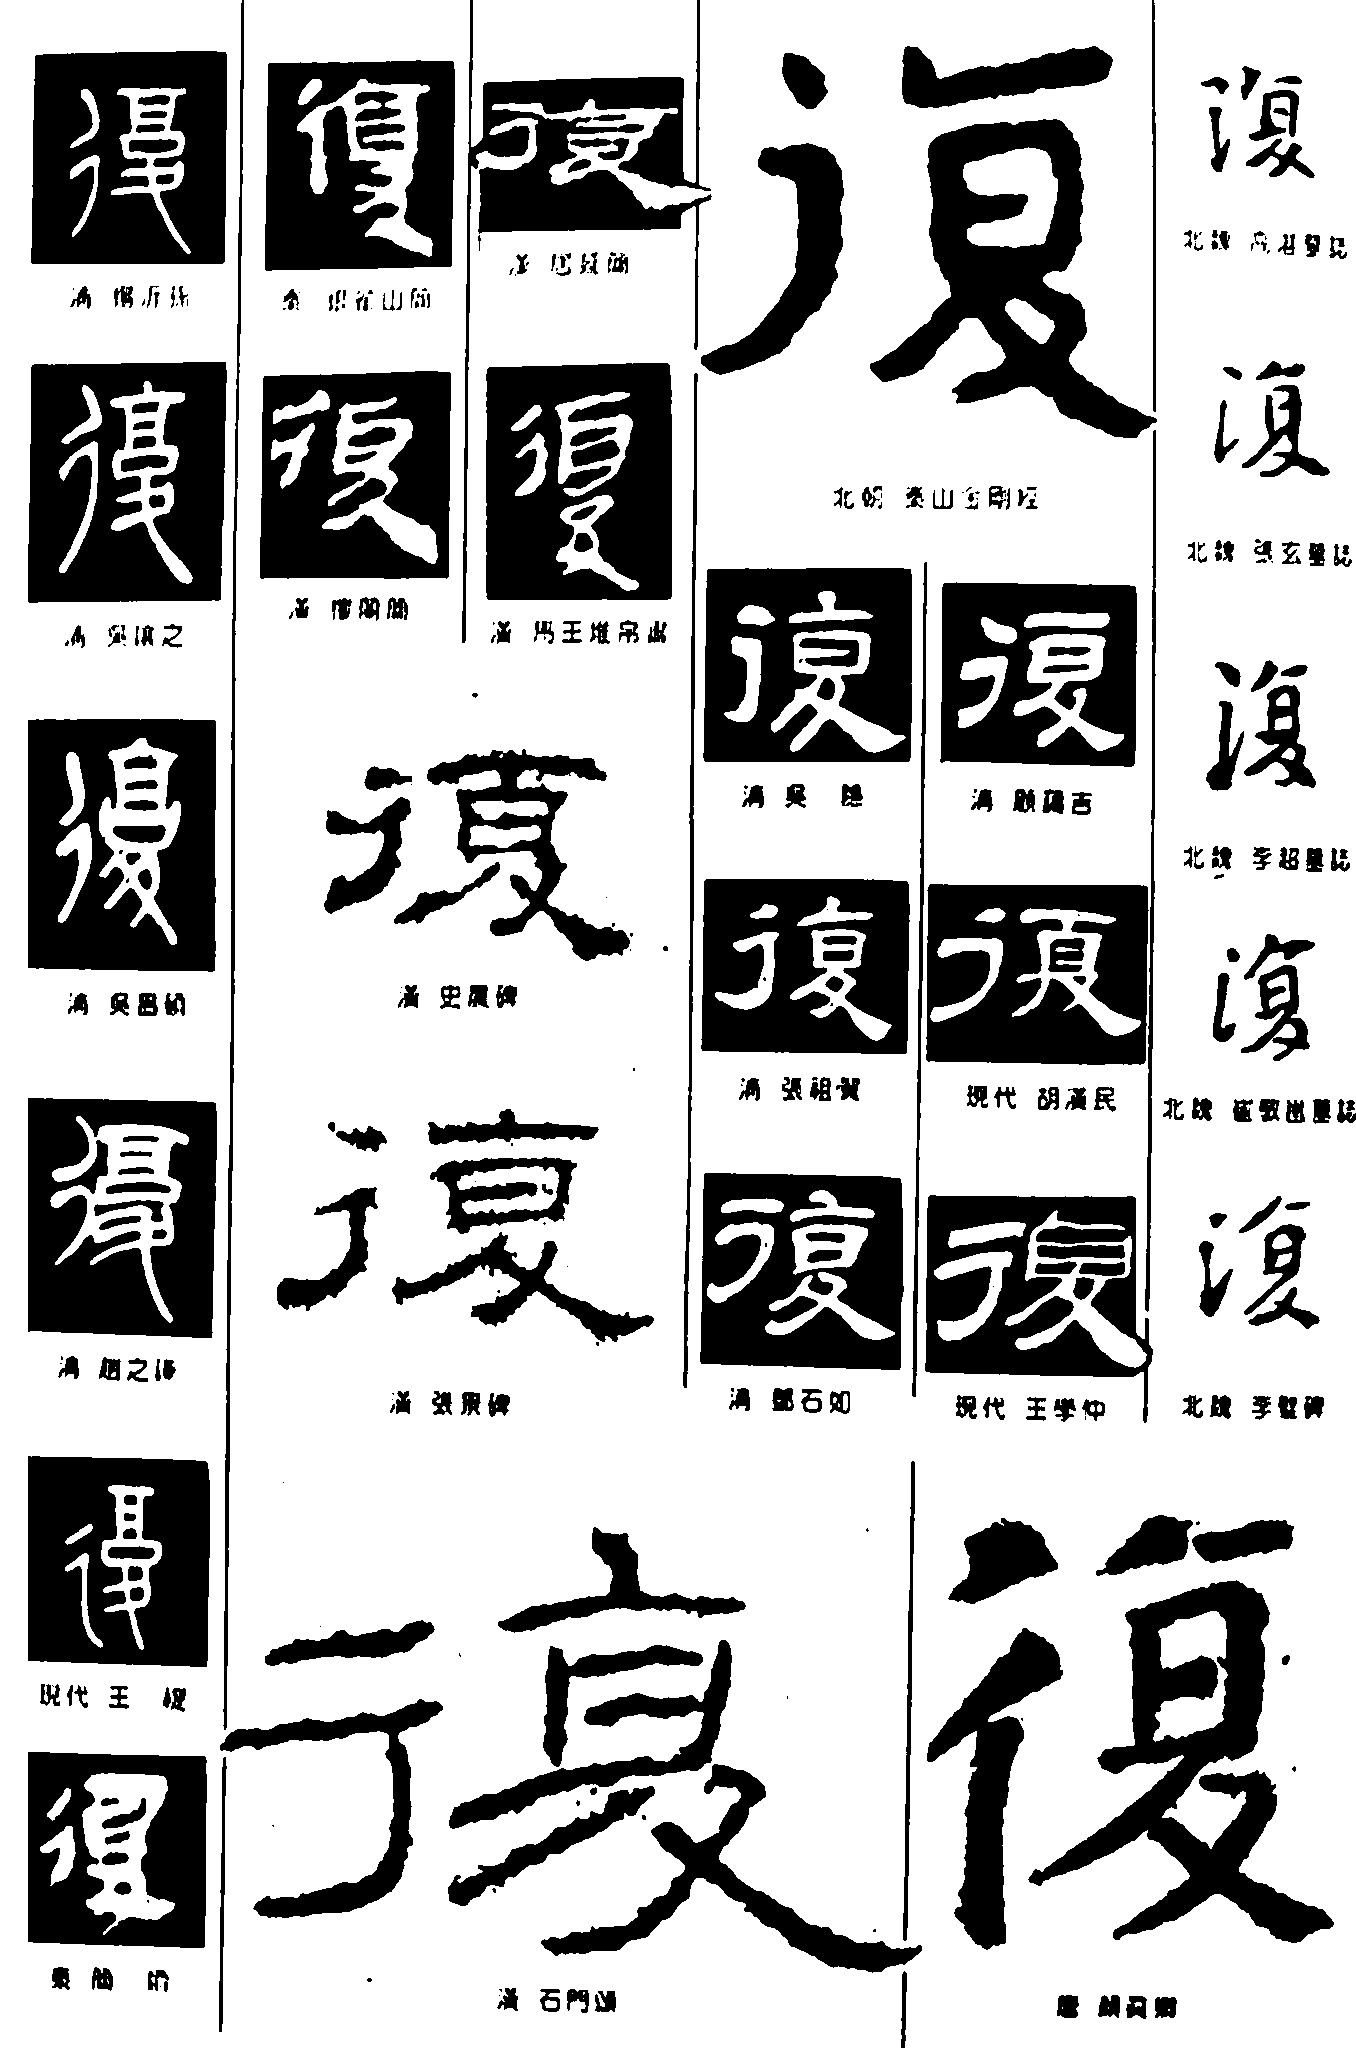 復
復
清 吳讓之
復
清 吳昌碩
復
清 趙之謙
復
現代 王
復
秦 簡
復
復
漢 居延簡
復
漢 樓蘭簡
復
漢 馬王堆帛書
復
漢 史晨碑
復
漢 張景碑
復
漢 石門頌
復
北朝 泰山金剛經
復
清 吳 隱
復
清 顧藹吉
復
清 張祖翼
復
現代 胡漢民
復
清 鄧石如
復
現代 王學仲
復
唐 顏真卿
復
北魏
復
北魏 張玄墓誌
復
北魏 李超墓誌
復
北魏 崔敬邕墓誌
復
北魏 李璧碑